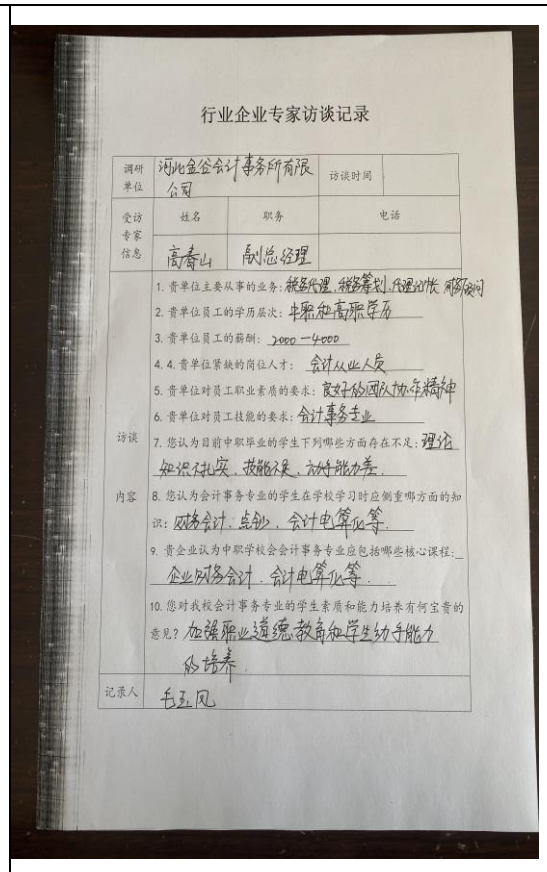 行业企业专家访谈记录
调研单位 河北金谷会计事务所有限公司 访谈时间
受访专家信息 姓名 职务 电话
高春山 副总经理
访谈内容
1. 贵单位主要从事的业务：税务代理、税务筹划、代理记帐 财务顾问
2. 贵单位员工的学历层次：中职和高职学历
3. 贵单位员工的薪酬：2000—4000
4. 4. 贵单位紧缺的岗位人才：会计从业人员
5. 贵单位对员工职业素质的要求：良好的团队协作精神
6. 贵单位对员工技能的要求：会计事务专业
7. 您认为目前中职毕业的学生下列哪些方面存在不足：理论
知识不扎实、技能不足、动手能力差.
8. 您认为会计事务专业的学生在学校学习时应侧重哪方面的知
识：财务会计、点钞、会计电算化等.
9. 贵企业认为中职学校会会计事务专业应包括哪些核心课程：
企业财务会计、会计电算化等.
10. 您对我校会计事务专业的学生素质和能力培养有何宝贵的
意见？加强职业道德教育和学生动手能力
的培养.
记录人 毛玉凤